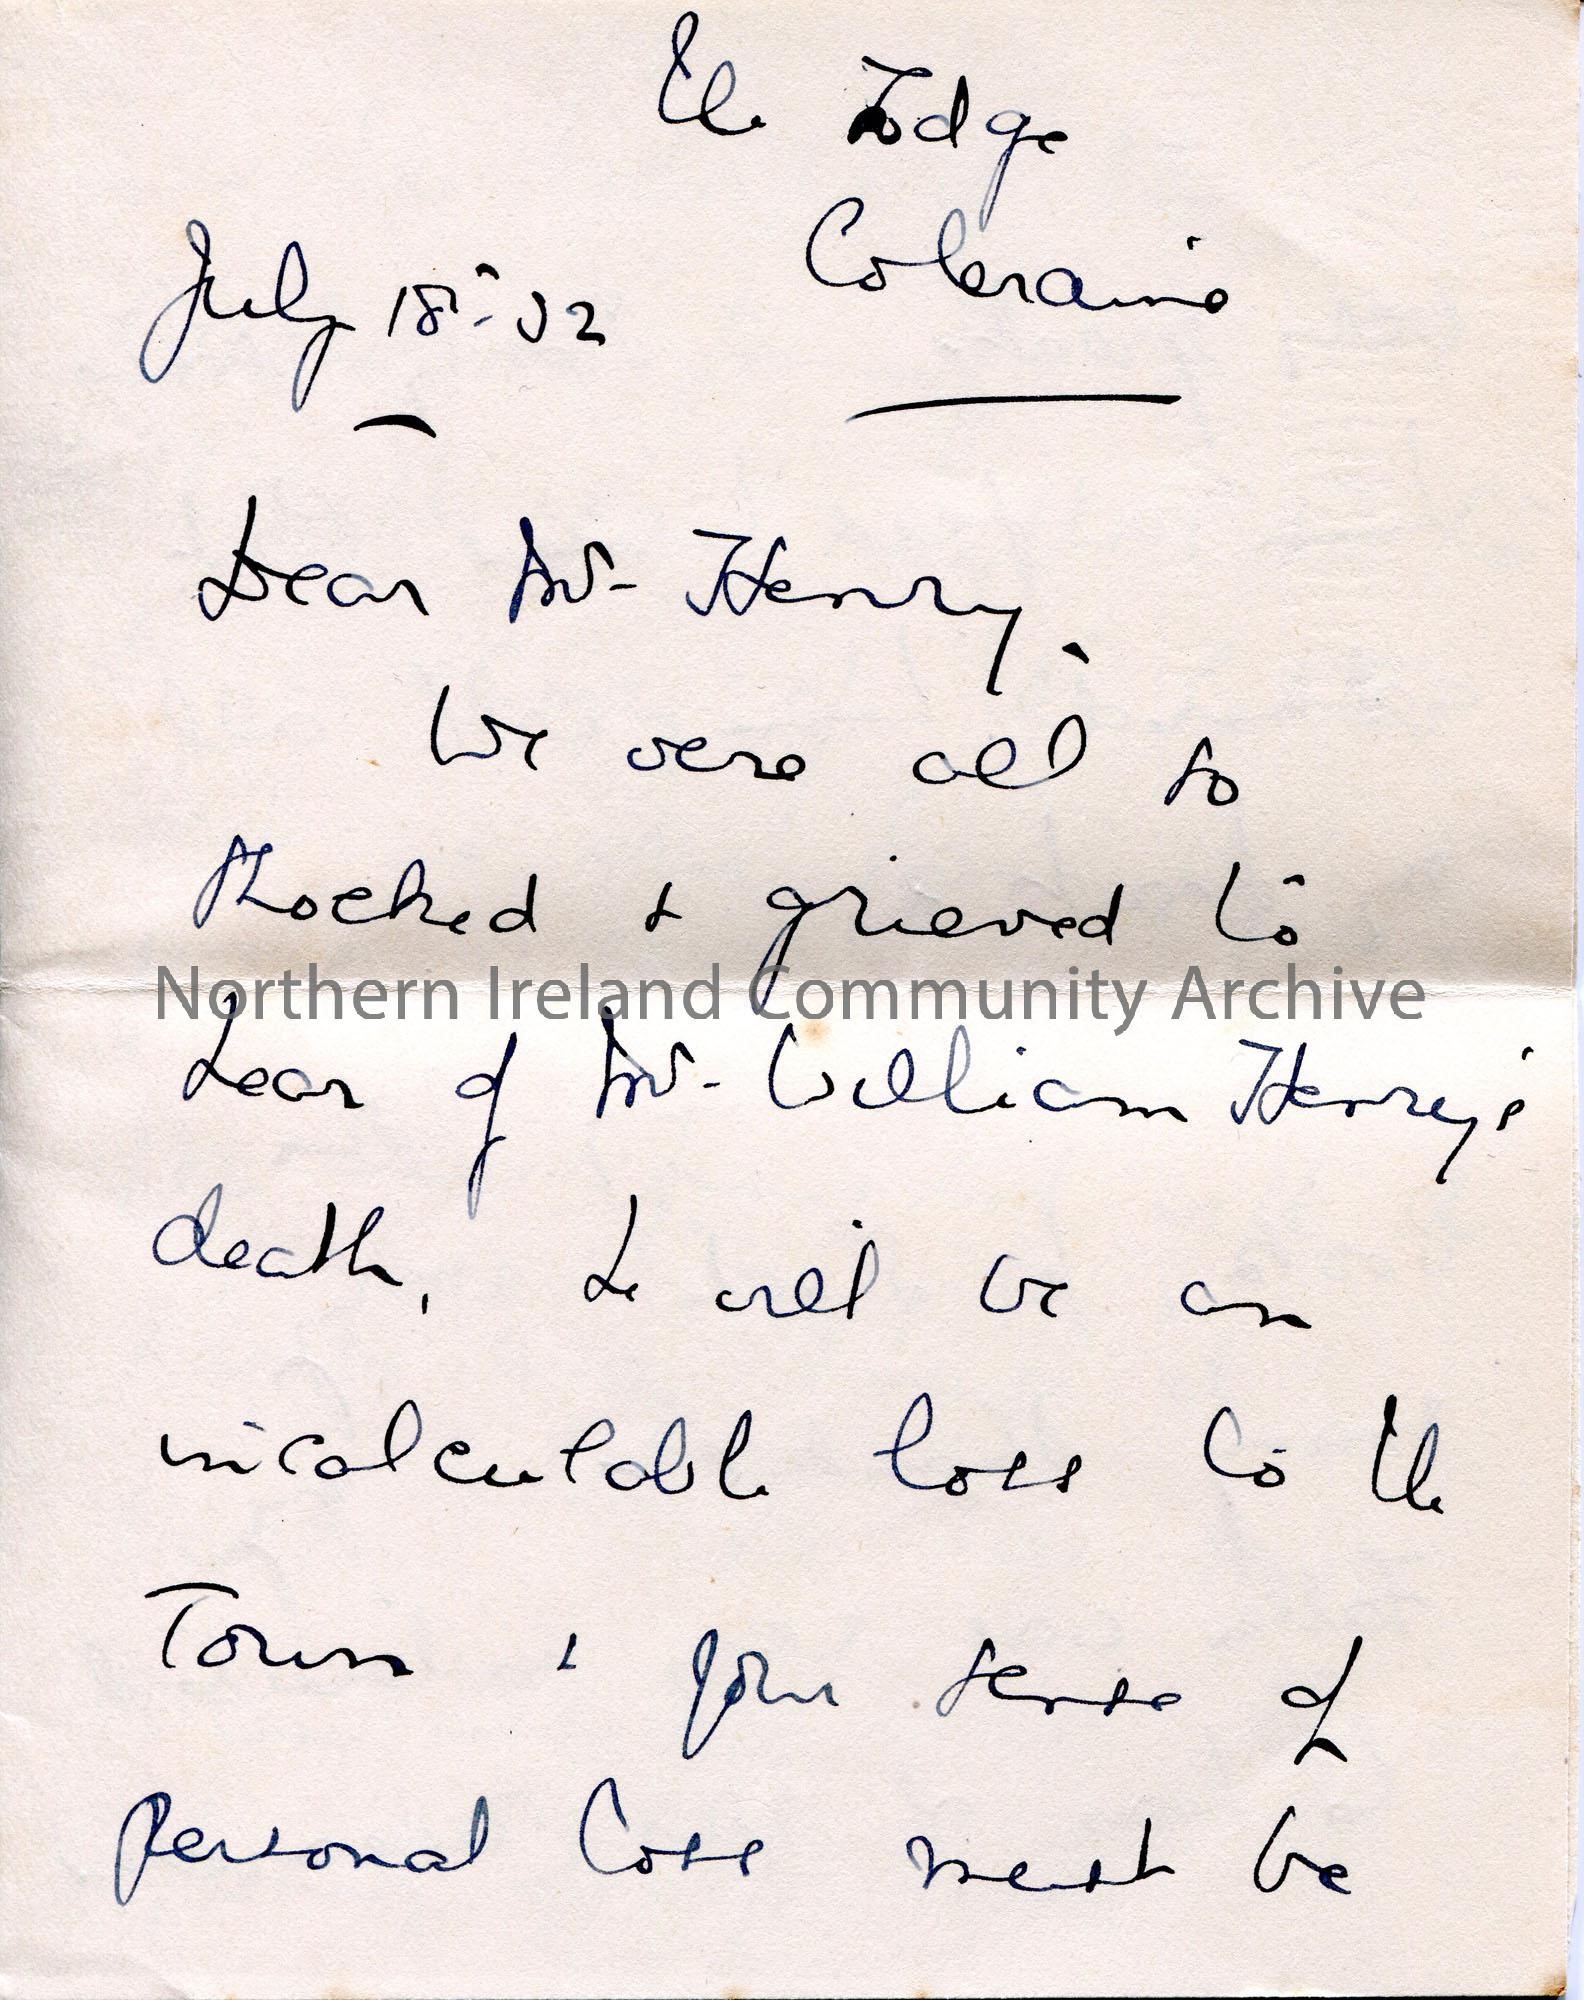 The Lodge
Coleraine
July 18th - 52
Dear Mr. Henry,
We were all so
shocked & grieved to
Northern Ireland Community Archive
hear of Mr. William Henry's
death, he will be an
incalculable loss to the
Town & your sense of
personal loss must be